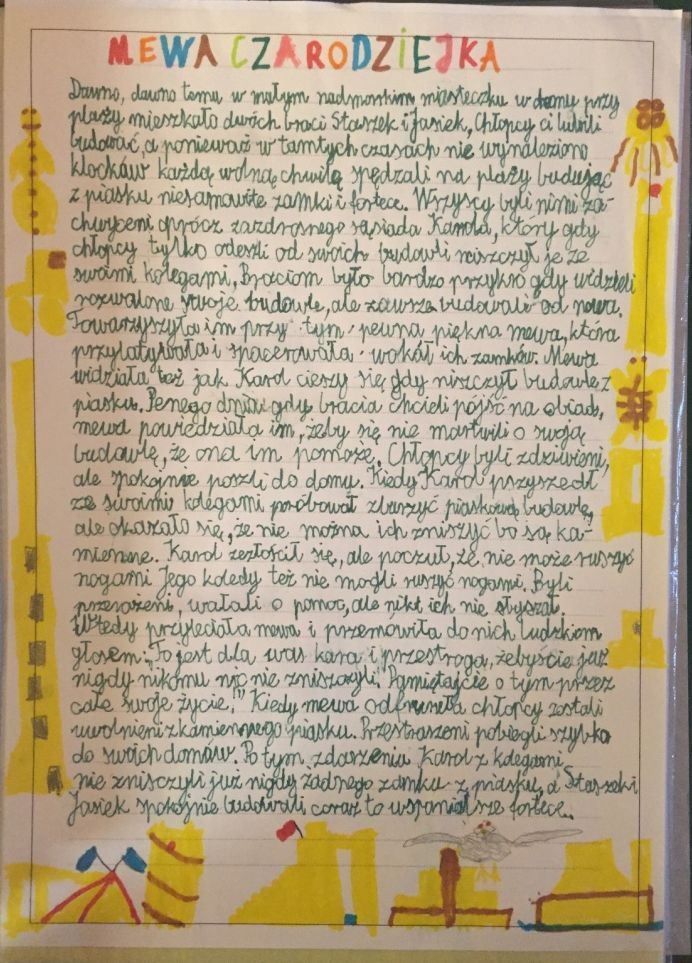 MEWA CZARODZIEJKA
Dawno, dawno temu w małym nadmorskim miasteczku w domy przy
plaży mieszkało dwóch braci Staszek i Jasiek, Chłopcy ci lubili
budować, a ponieważ w tamtych czasach nie wynaleziono
klocków każdą wolną chwilę spędzali na plaży budując
z piasku niesamowite zamki i fortece. Wszyscy byli nimi za-
chwyceni oprócz zazdrosnego sąsiada Karola, który gdy
chłopcy tylko odeszli od swoich budowli niszczył je ze
swoimi kolegami, Braciom było bardzo przykro gdy widzieli
rozwalone swoje budowle, ale zawsze budowali od nowa.
Towarzyszyła im przy tym pewna piękna mewa, która
przylatywała i spacerowała wokół ich zamków. Mewa
widziała też jak Karol cieszy się gdy niszczył budowle z
piasku. Penego dnia gdy bracia chcieli pójść na obiad,
mewa powiedziała im, żeby się nie martwili o swoją
budowlę, że ona im pomoże, Chłopcy byli zdziwieni,
ale spokojnie poszli do domu. Kiedy Karol przyszedł
ze swoimi kolegami próbował zburzyć piaskową budowlę,
ale okazało się, że nie można ich zniszyć bo są ka-
mienne. Karol zezłościł się, ale poczuł, że nie może ruszyć
nogami Jego koledy też nie mogli ruszyć nogami. Byli
przerażeni, wołali o pomoc, ale nikt ich nie słyszał.
Wtedy przyleciała mewa i przemówiła do nich ludzkim
głosem: „To jest dla was kara i przestroga, żebyście już
nigdy nikomu nic nie zniszczyli! Pamiętajcie o tym przez
całe swoje życie!" Kiedy mewa odfrunęła chłopcy zostali
uwolnieni z kamiennego piasku. Przestraszeni pobiegli szybko
do swoich domów. Po tym zdarzeniu Karol z kolegami
nie znisczyli już nigdy żadnego zamku z piasku, a Staszek i
Jasiek spokojnie budowali coraz to wspanialsze fortece..